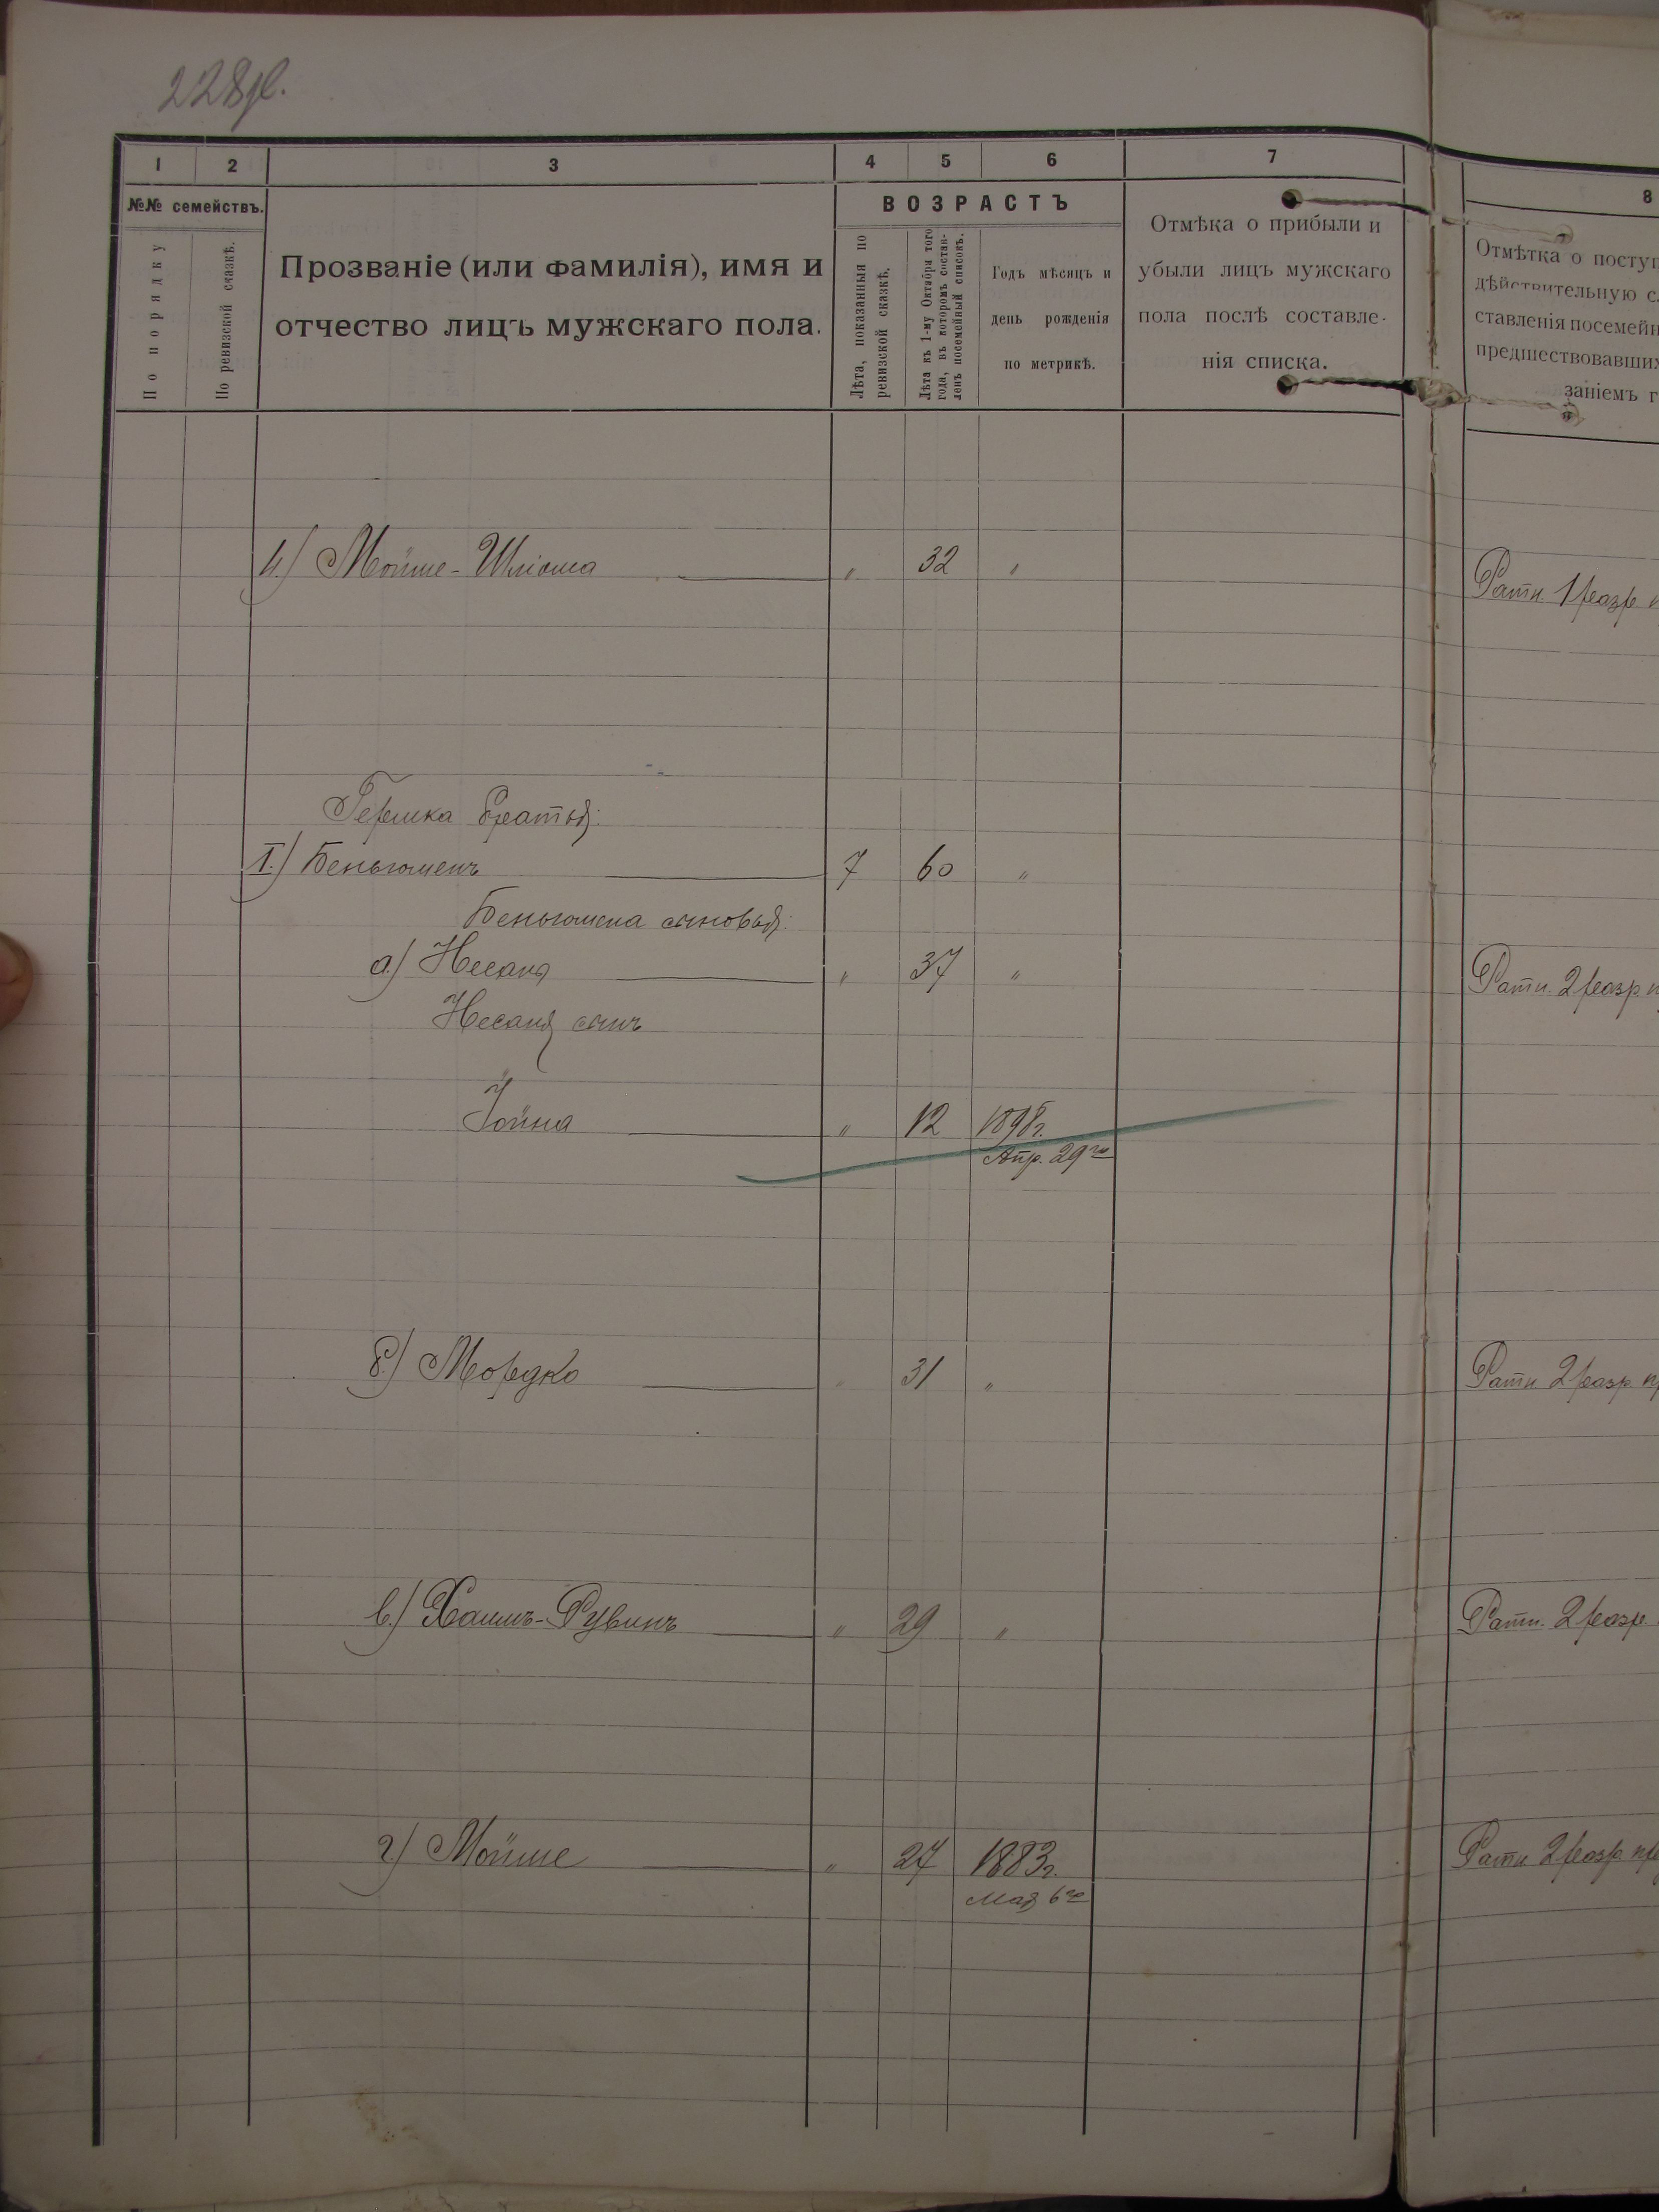 228
1 2 3 4 5 6 7 8
№№ семействъ.
По порядку
По ревизской сказкѣ.
Прозваніе (или фамилія), имя и
отчество лицъ мужскаго пола.
ВОЗРАСТЪ
Лѣта, показанныя по
ревизской сказкѣ.
Лѣта къ 1-му Октября того
года, въ которомъ состав-
ленъ посемейный списокъ.
Годъ мѣсяцъ и
день рожденія
по метрикѣ.
Отмѣка о прибыли и
убыли лицъ мужскаго
пола послѣ составле-
нія списка.
Отмѣтка о поступ
дѣйствительную с
ставленія посемейн
предшествовавших
заніемъ г
4.) Мойше-Шліома " 32 "
Ратн. 1 разр.
Гершка братья:
I.) Беньюменъ 7 60 "
Беньюмена сыновья:
а.) Несаня " 37 "
Ратн. 2 разр.
Несаня сынъ
Іойна " 12 1898г.
Апр. 29го
б.) Мордко " 31 "
Ратн 2 разр.
в.) Хаимъ-Рувинъ " 29 "
Ратн. 2 разр.
г.) Мойше " 27 1883г.
Мая 6го
Ратн 2 разр.